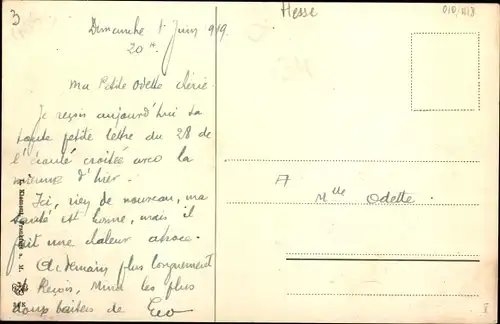 3
Hesse
Dimanche 1 Juin 919
20 H.
Ma Petite Odette chérie
Je reçois aujourd'hui ta
petite lettre du 28 de
croisée avec la
mienne d'hier.
Ici, rien de nouveau, ma
santé est bonne, mais il
fait une chaleur
A demain plus longuement
Reçois, Mina les plus
doux baisers de Leo
A
Mlle Odette